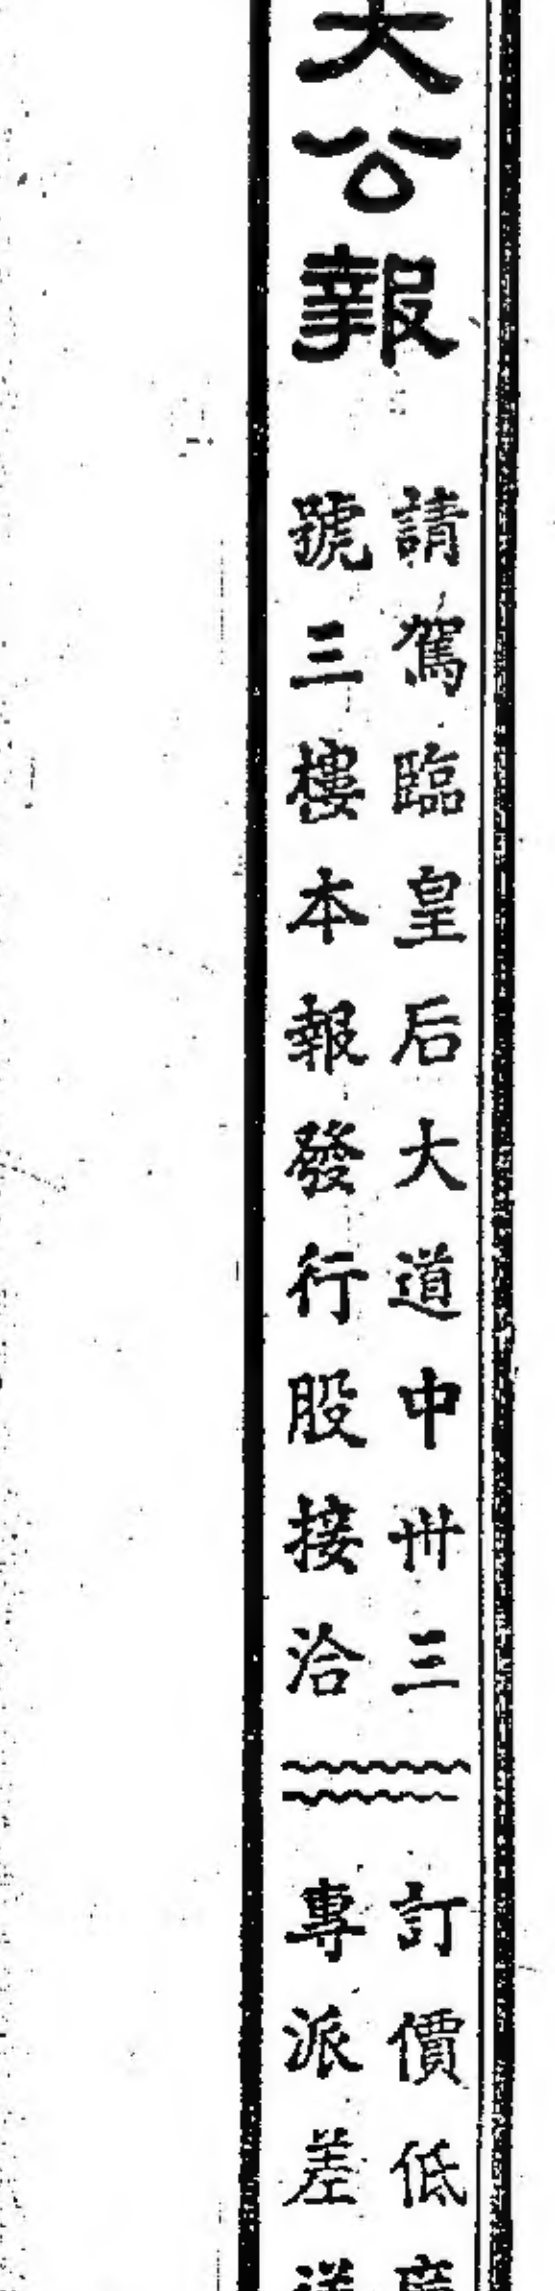 大公報
請駕臨皇后大道中卅三
號三樓本報發行股接洽
訂價低
專派差